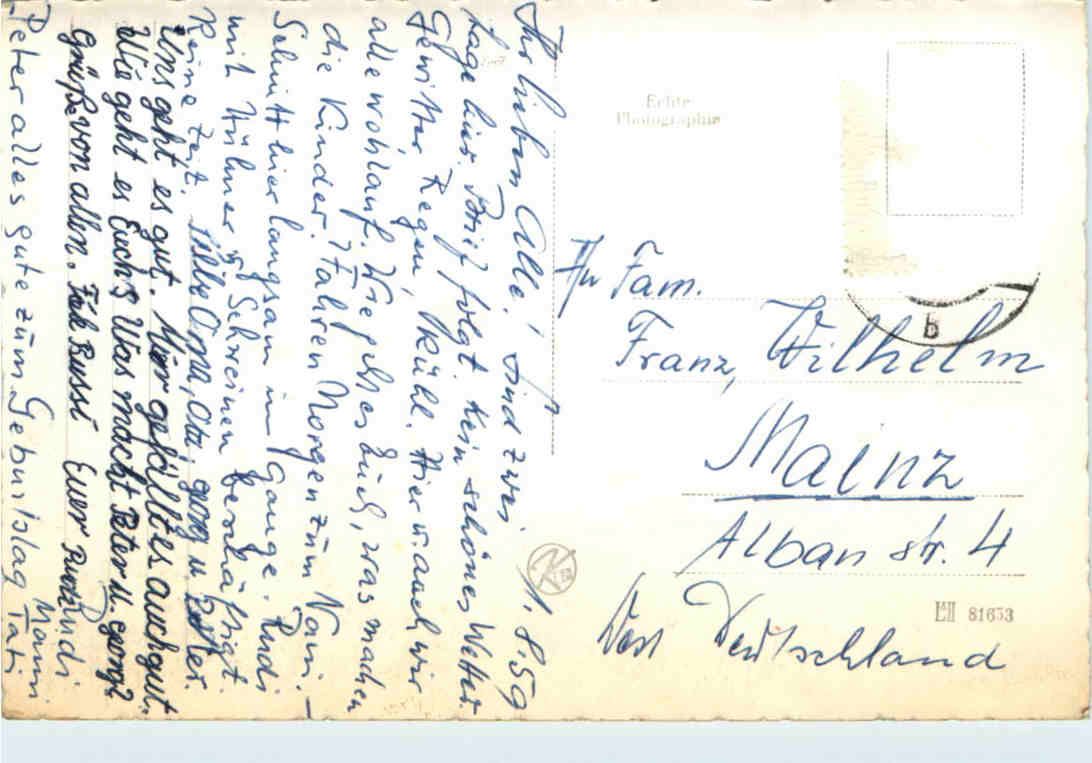 1. 8. 59
Ihr lieben Alle! Sind zwei
Tage hier. Brief folgt. Kein schönes Wetter
Gewitter, Regen, kühl. Hier u. auch wir
alle wohlauf. Wie geht es Euch, was machen
die Kinder? Fahren Morgen zum
Schnitt hier langsam im Gange. Rudi
mit Hühner u. Schweinen beschäftigt.
Keine Zeit. Liebe Oma, Georg u.
Uns geht es gut. Mir gefällt es auch gut.
Wie geht es Euch? Was macht Peter u. Georg?
Grüße von allen. Bussi Euer Rudi
Peter alles gute zum Geburtstag Mami
Tati
Echte
Photographie
An Fam.
Franz, Wilhelm
Mainz
Alban str. 4
West Deutschland
b
81633